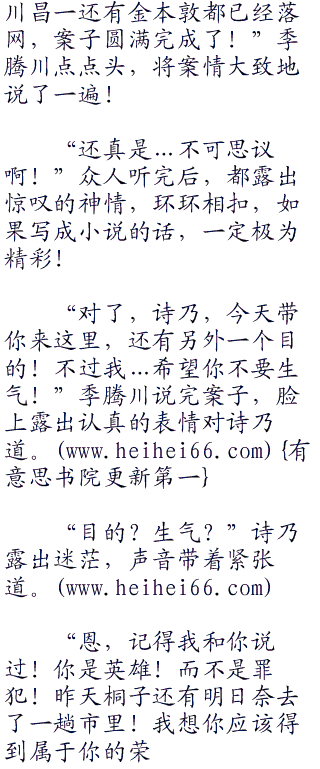 川昌一还有金本敦都已经落
网，案子圆满完成了！”季
腾川点点头，将案情大致地
说了一遍！
“还真是...不可思议
啊！”众人听完后，都露出
惊叹的神情，环环相扣，如
果写成小说的话，一定极为
精彩！
“对了，诗乃，今天带
你来这里，还有另外一个目
的！不过我...希望你不要生
气！”季腾川说完案子，脸
上露出认真的表情对诗乃
道。(www.heihei66.com){有
意思书院更新第一}
“目的？生气？”诗乃
露出迷茫，声音带着紧张
道。(www.heihei66.com)
“恩，记得我和你说
过！你是英雄！而不是罪
犯！昨天桐子还有明日奈去
了一趟市里！我想你应该得
到属于你的荣